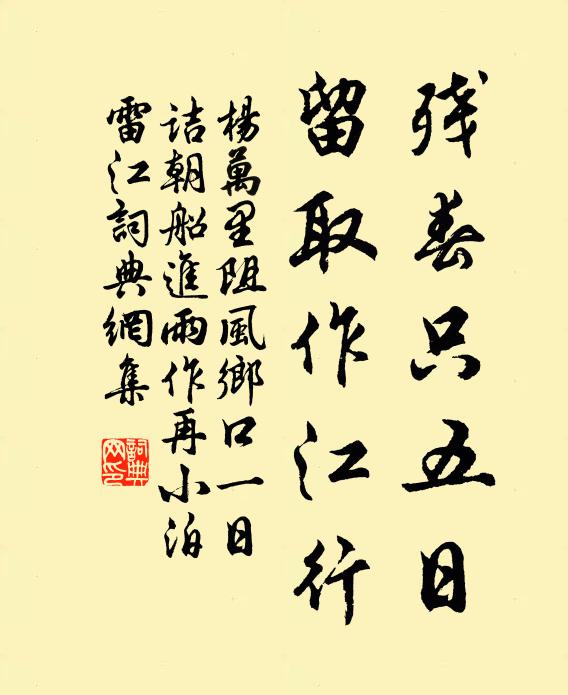 残春只五日
留取作江行
楊萬里阻風鄉口一日
詰朝船進雨作再小泊
雷江詞典網集
詞典网印